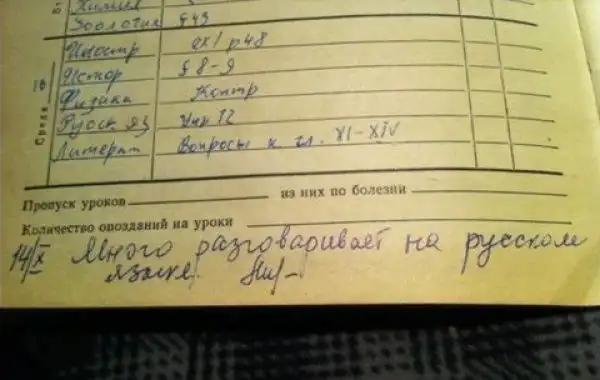 Химия
Зоология § 43
Иностр ex 1 p 48
16
Истор § 8-9
Физика Контр
Русск яз Упр 72
Литерат Вопросы к гл. XI-XIV
Среда
Пропуск уроков из них по болезни
Количество опозданий на уроки
14/X Много разговаривает на русском
языке.